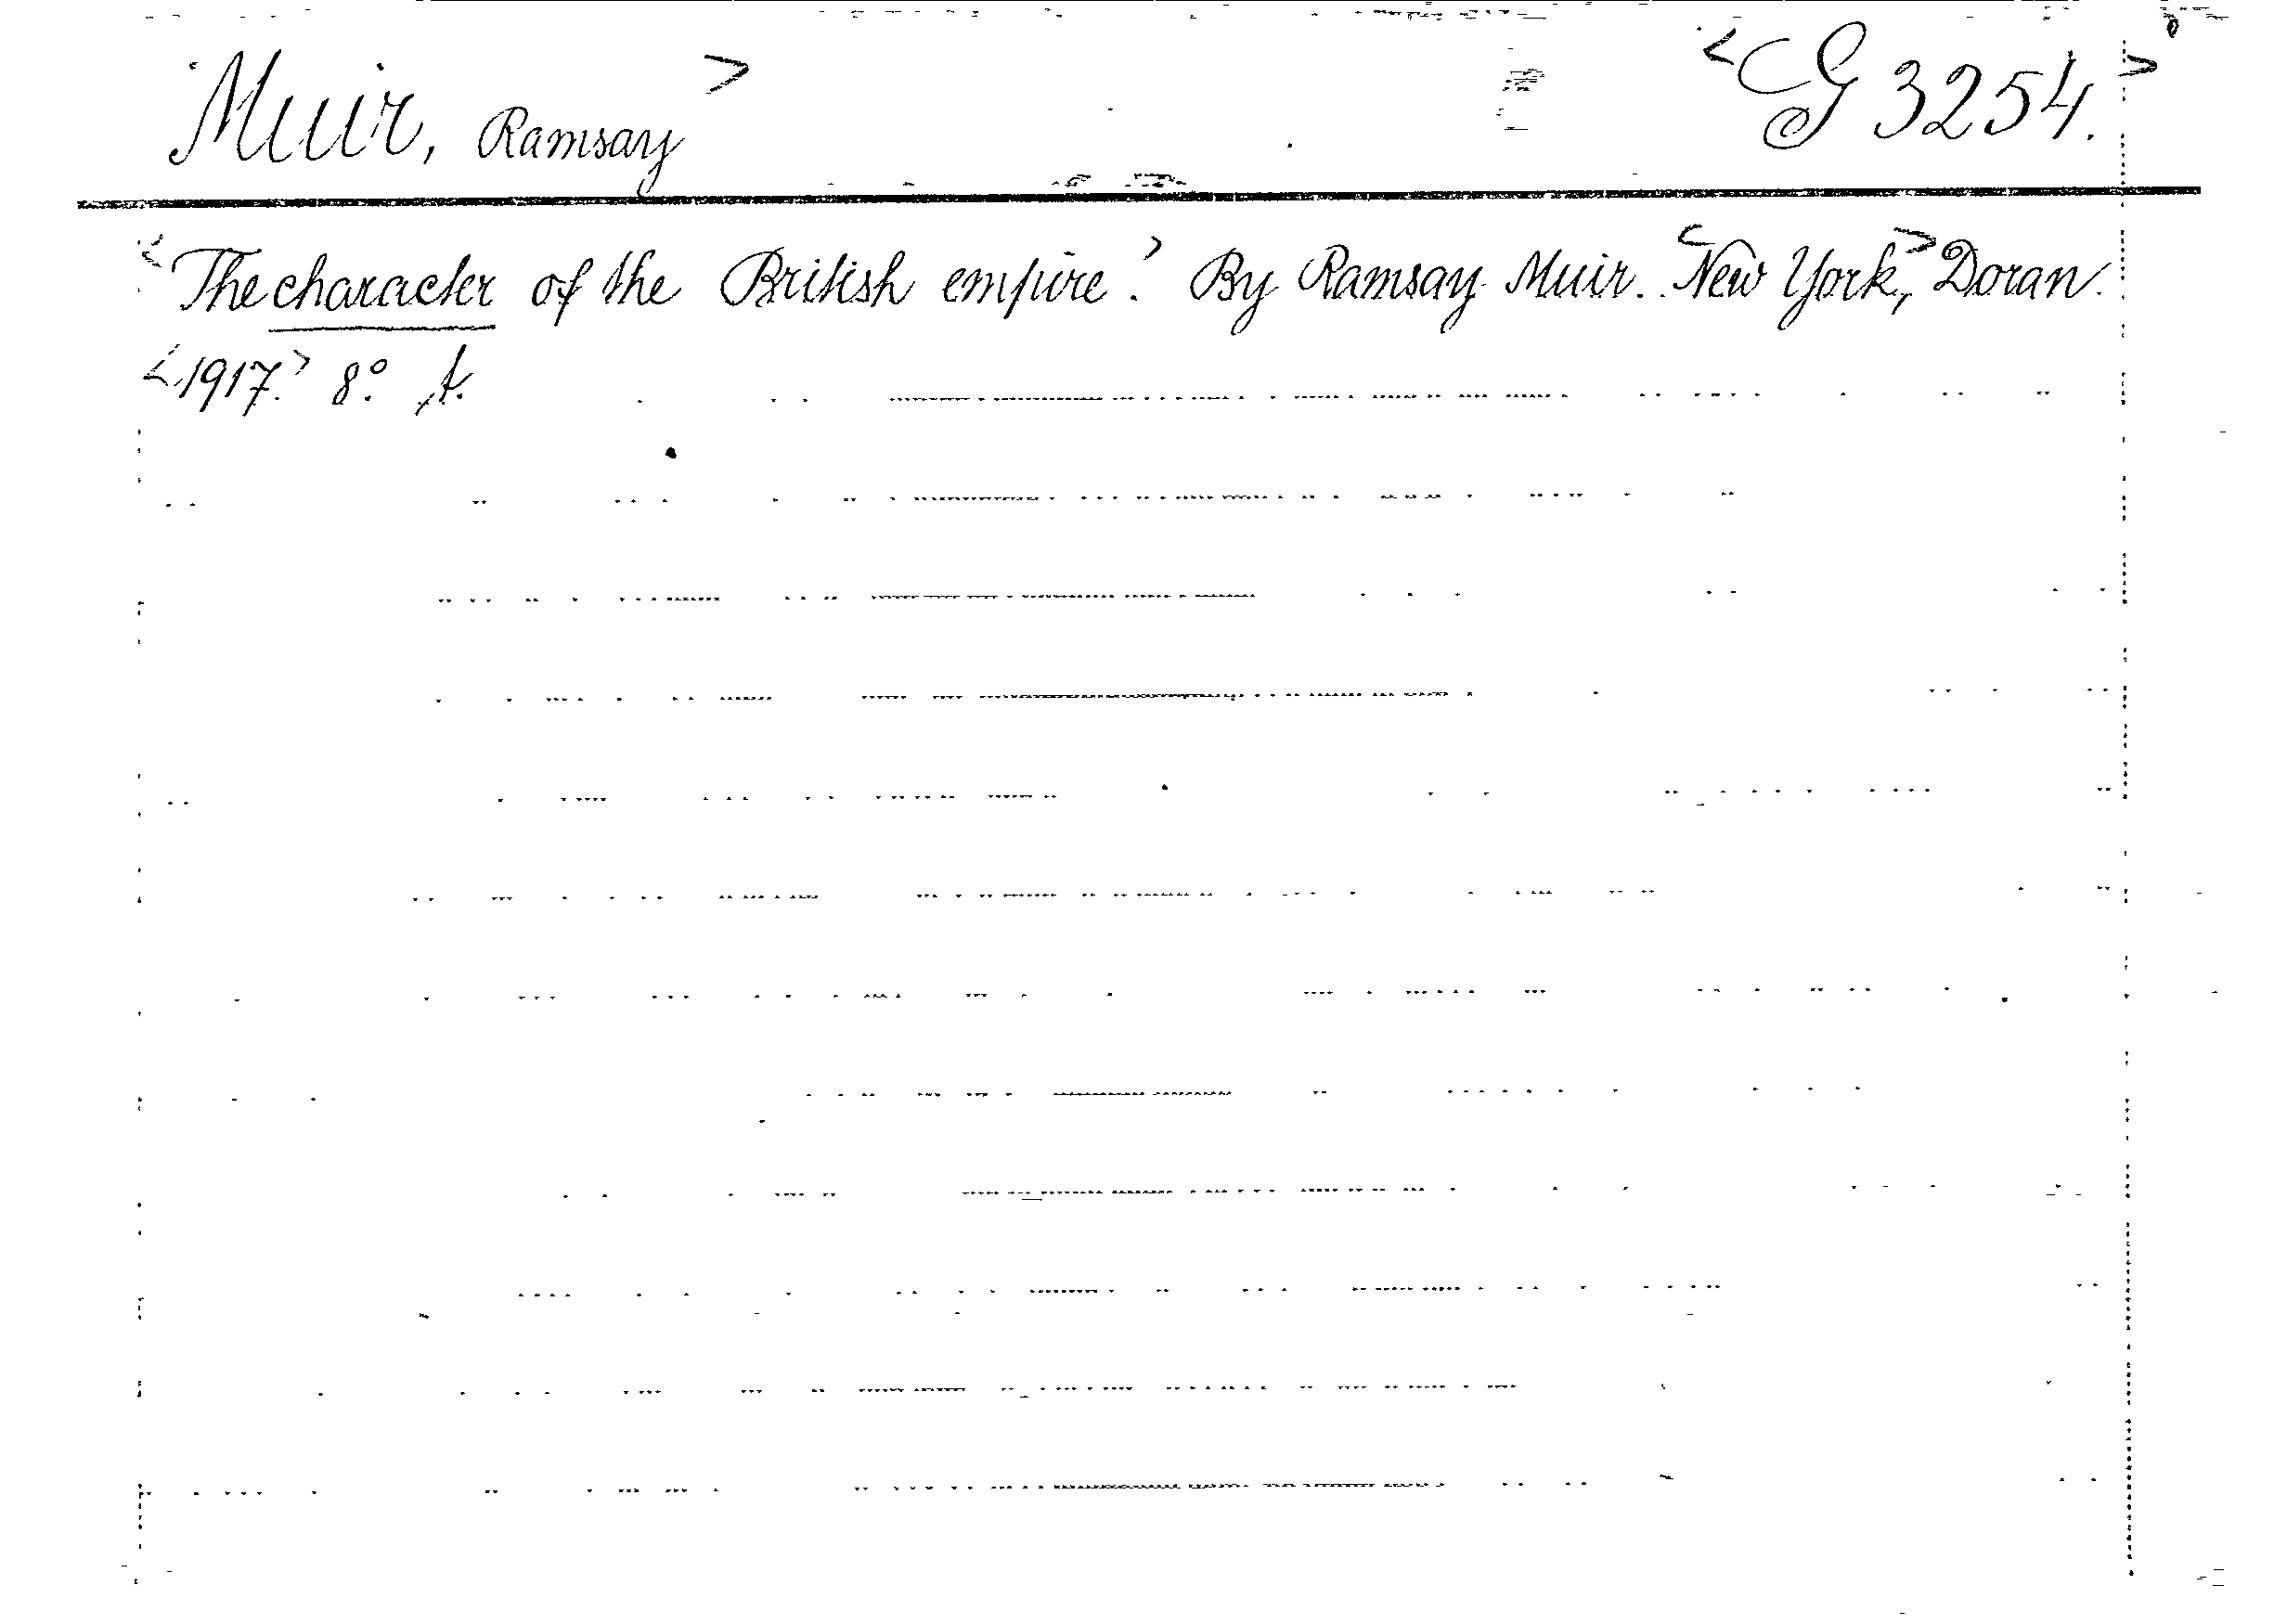 Muir, Ramsay > <G 3254.>
<The character of the British empire.> By Ramsay Muir. <New York,> Doran.
<1917.> 8°.